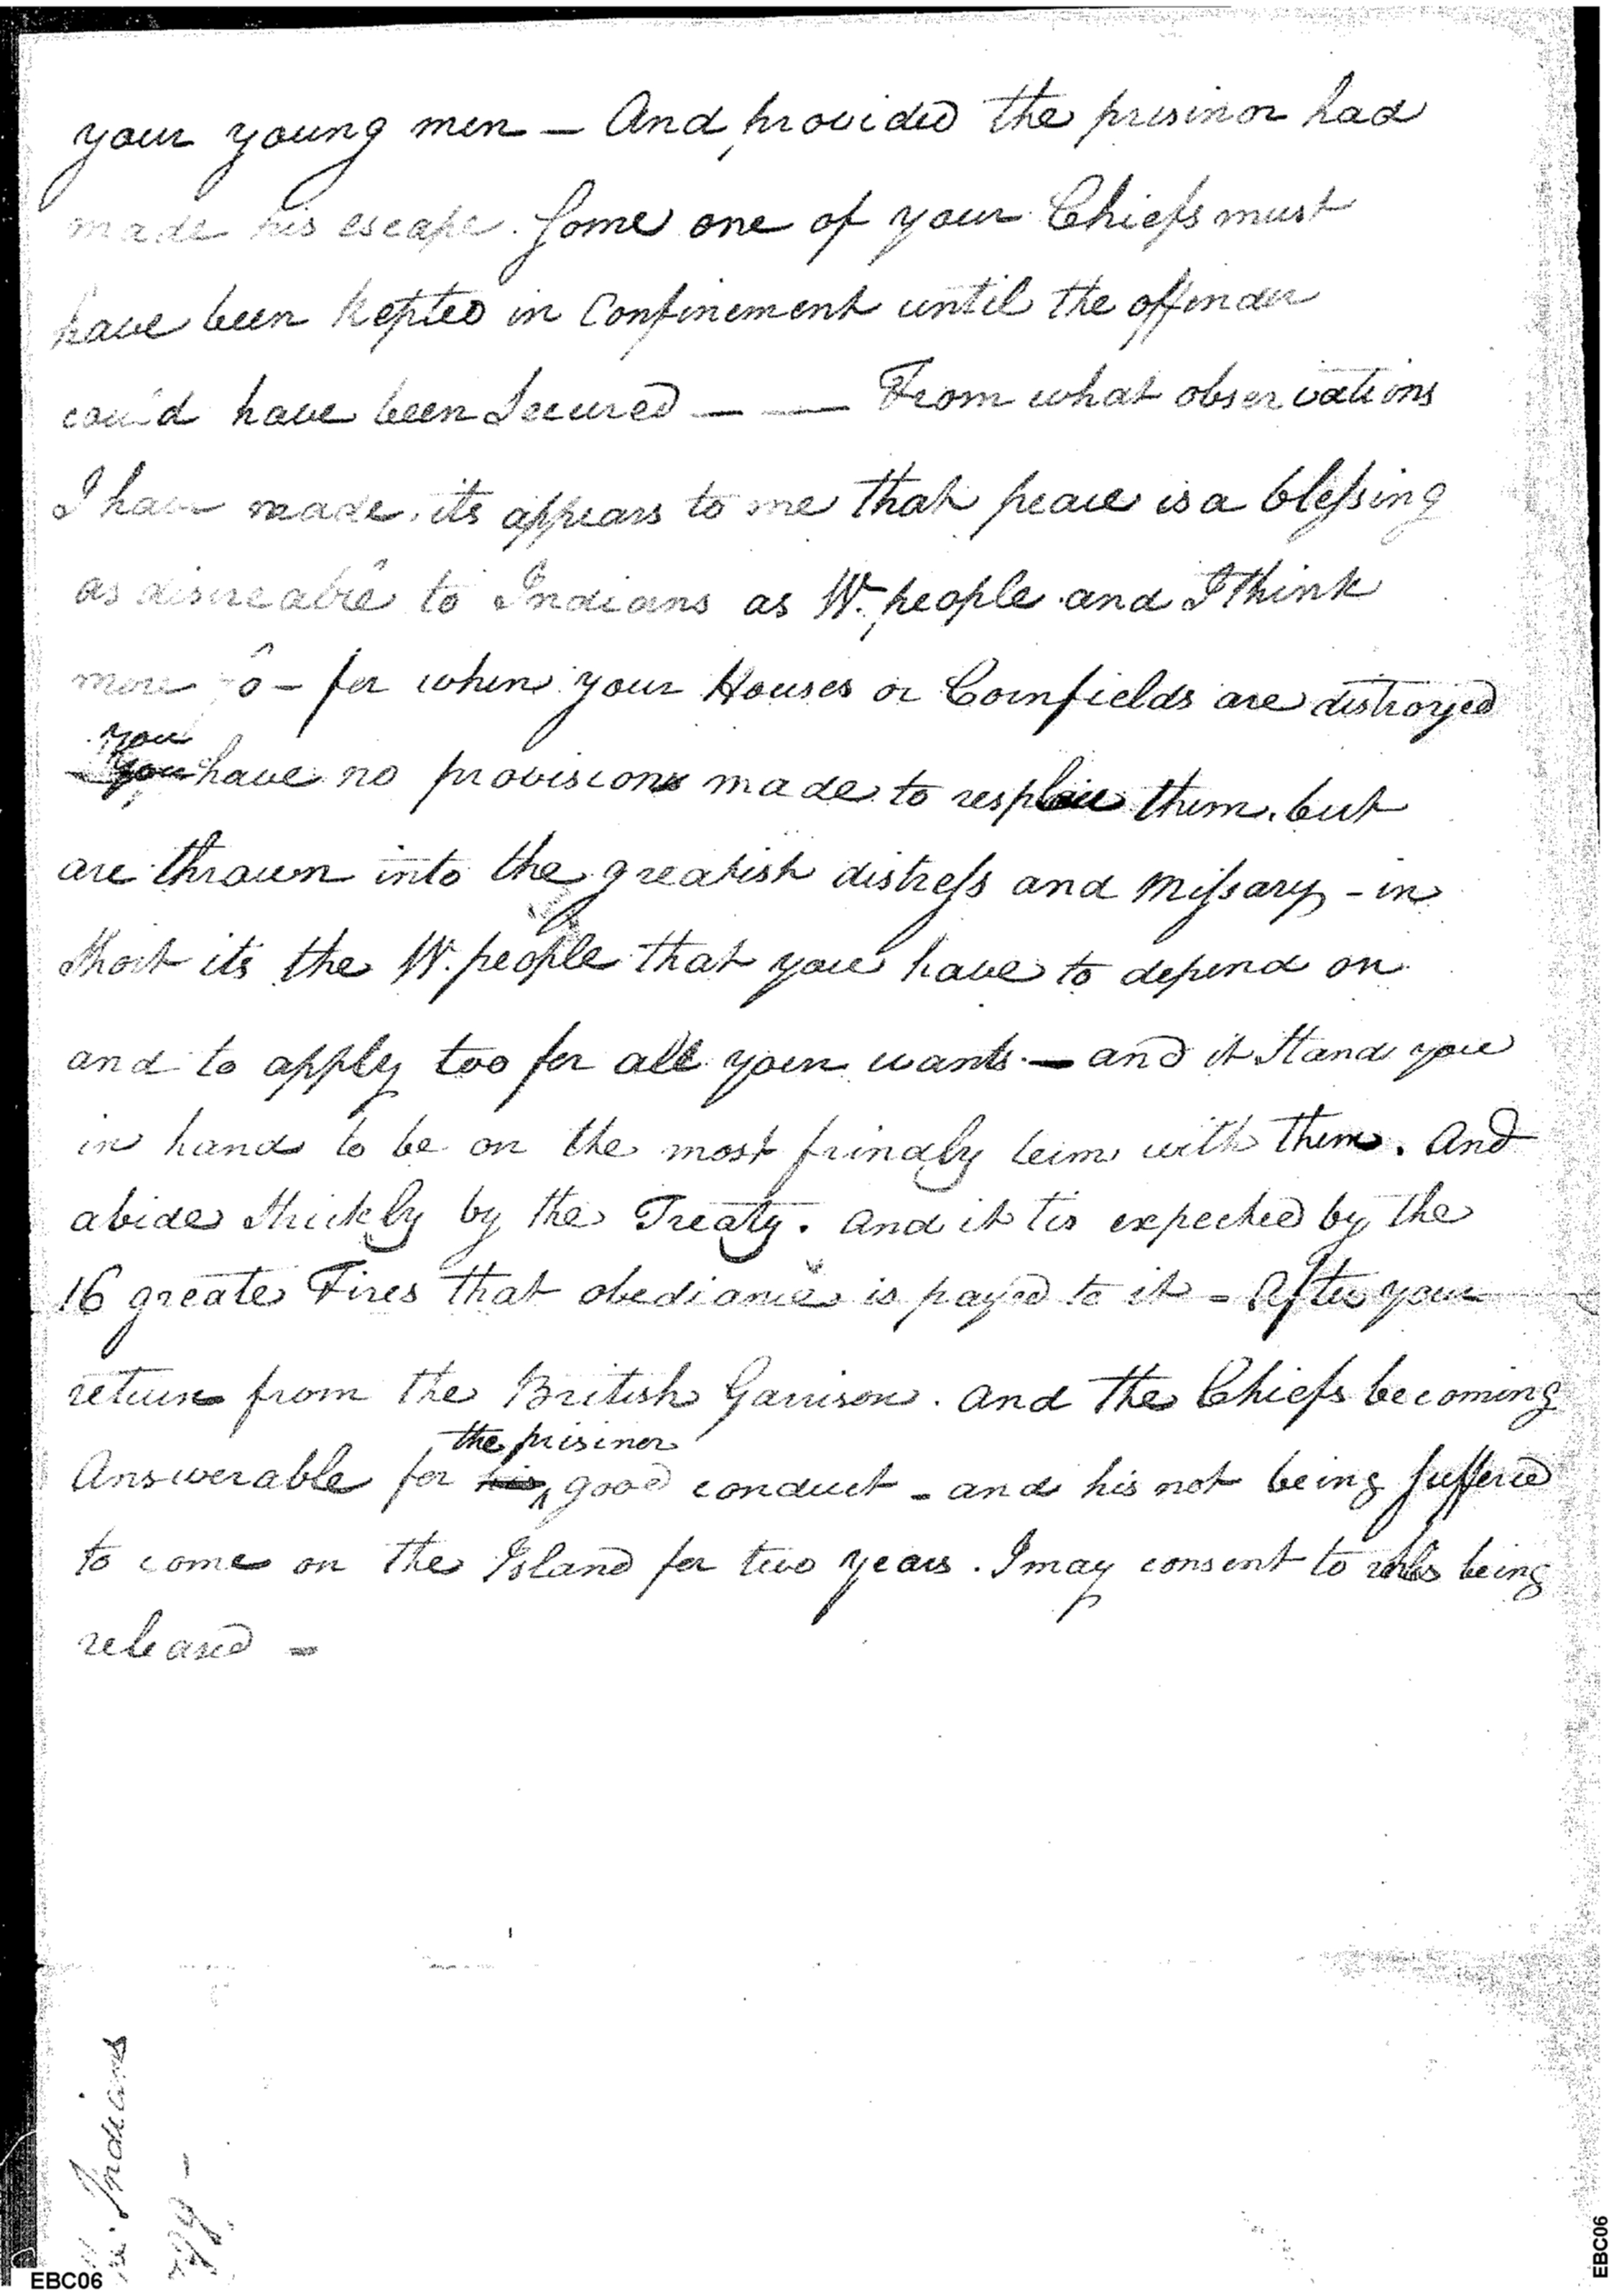 your young men — And provided the prisinor had
made his escape. Some one of your Chiefs must
have been kepted in Confinement until the offender
could have been Secured — — From what observations
I have made, its appears to me that peace is a blessing
as disireable to Indians as W. people and I think
more so — for when your Houses or Cornfields are distroyed
you
you have no provisions made to resplace them. but
are thrown into the greatist distress and Missary — in
Short its the W. people that you have to depend on
and to apply too for all your wants — and it Stands you
in hand to be on the most frindly terms with them. And
abide Stricktly by the Treaty. and it tis expected by the
16 greate Fires that obediance is payed to it — After your
return from the British Garrison. and the Chiefs becoming
the prisinor
Answerable for his good conduct — and his not being suffered
to come on the Island for two years. I may consent to his being
released —
Indians
EBC06
EBC06